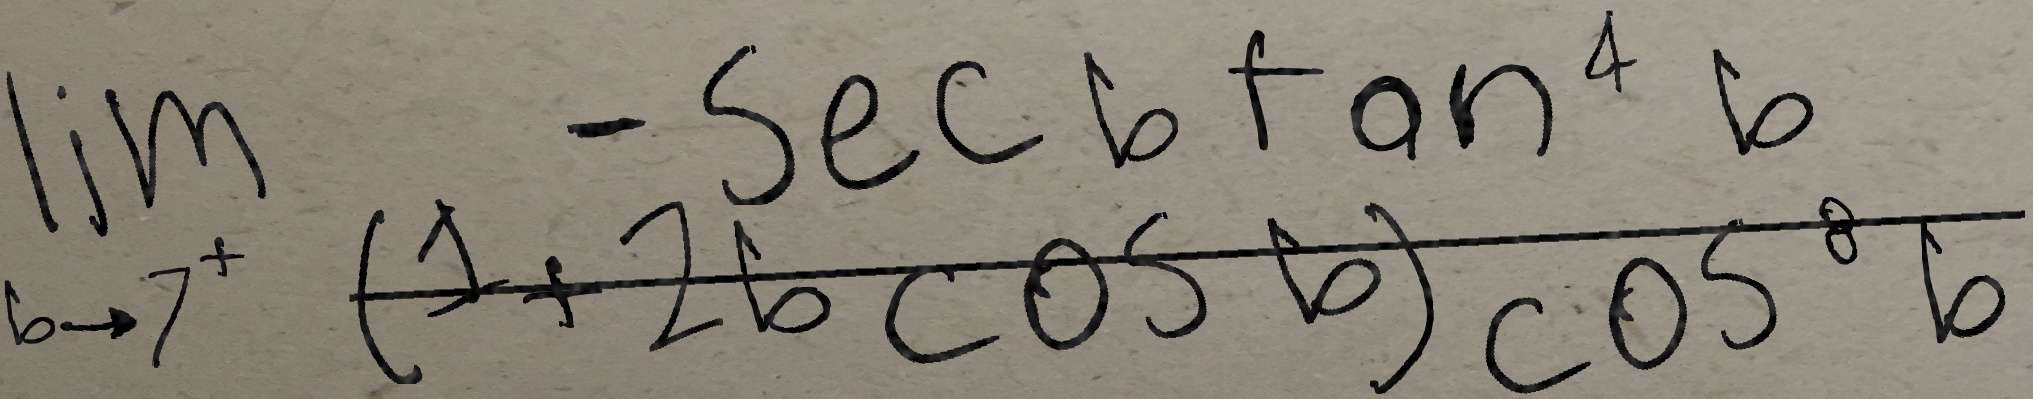 lim_{b→7^+} \frac{-sec b tan^4 b}{(1+2b cos b) cos^8 b}